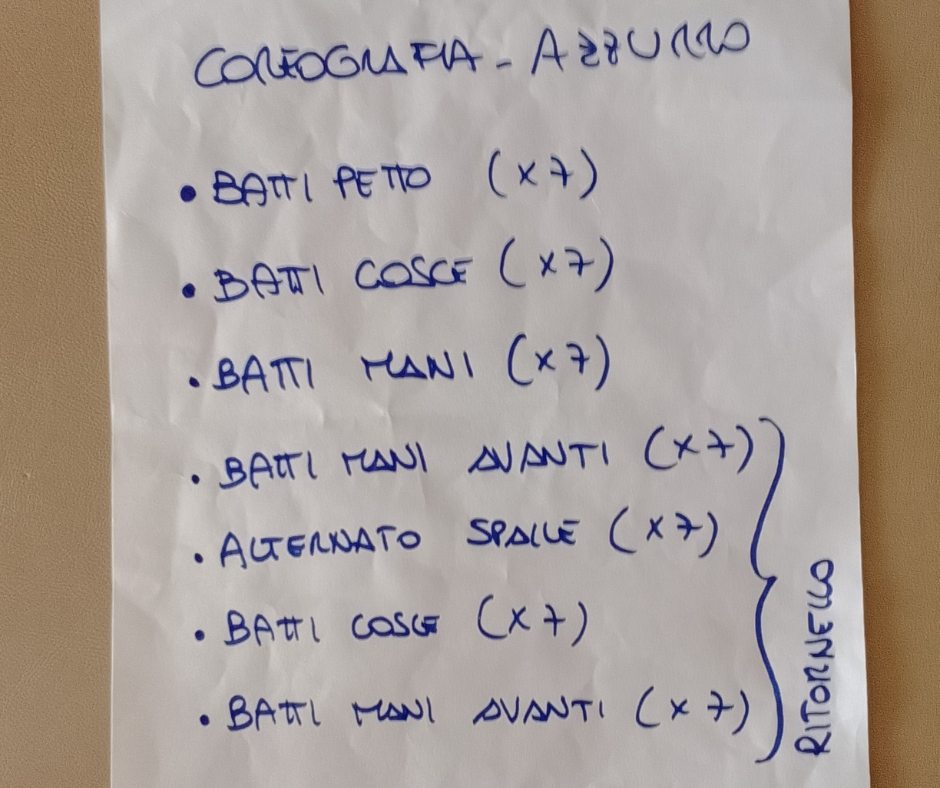 COREOGRAFIA - AZZURRO
• BATTI PETTO (x7)
• BATTI COSCE (x7)
• BATTI MANI (x7)
• BATTI MANI AVANTI (x7)
• ALTERNATO SPALLE (x7)
• BATTI COSCE (x7)
• BATTI MANI AVANTI (x7)
RITORNELLO